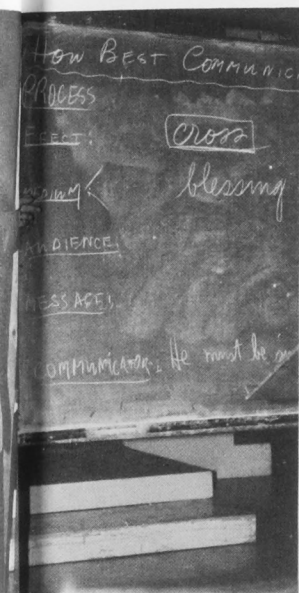 HOW BEST COMMUNIC
PROCESS
EFFECT: cross
blessing
AUDIENCE:
MESSAGE:
COMMUNICATOR: He must be